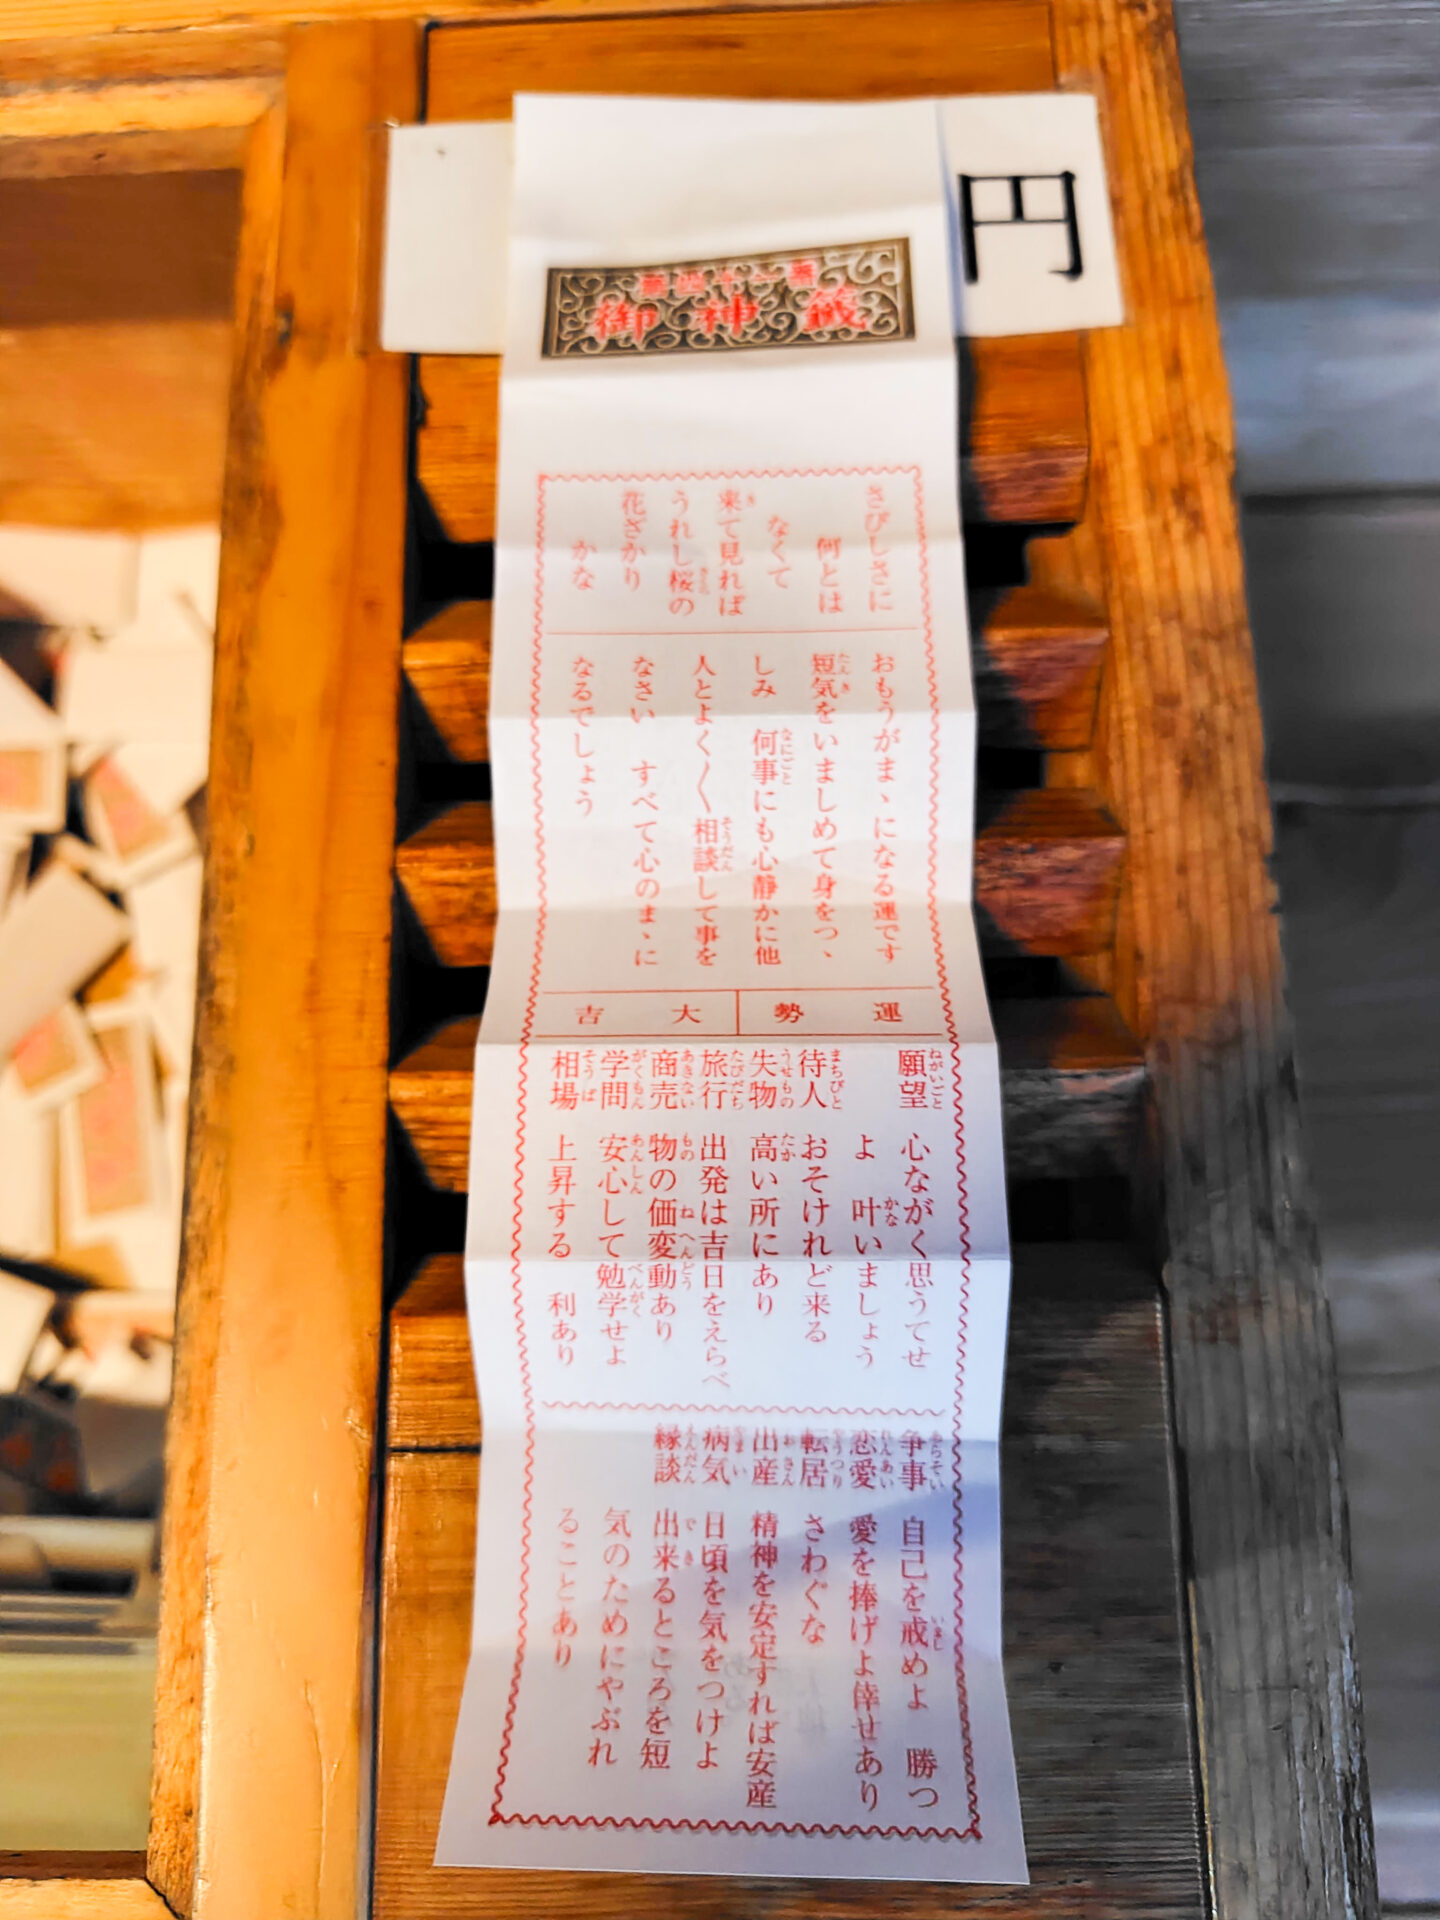 円
第四十一番
御神籤
さびしさに
何とは
なくて
来て見れば
うれし桜の
花ざかり
かな
おもうがまゝになる運です
短気をいましめて身をつゝ
しみ 何事にも心静かに他
人とよく〱相談して事を
なさい すべて心のまゝに
なるでしょう
運勢 大吉
願望 心ながく思うてせ
よ 叶いましょう
待人 おそけれど来る
失物 高い所にあり
旅行 出発は吉日をえらべ
商売 物の価変動あり
学問 安心して勉学せよ
相場 上昇する 利あり
争事 自己を戒めよ 勝つ
恋愛 愛を捧げよ倖せあり
転居 さわぐな
出産 精神を安定すれば安産
病気 日頃を気をつけよ
縁談 出来るところを短
気のためにやぶれ
ることあり